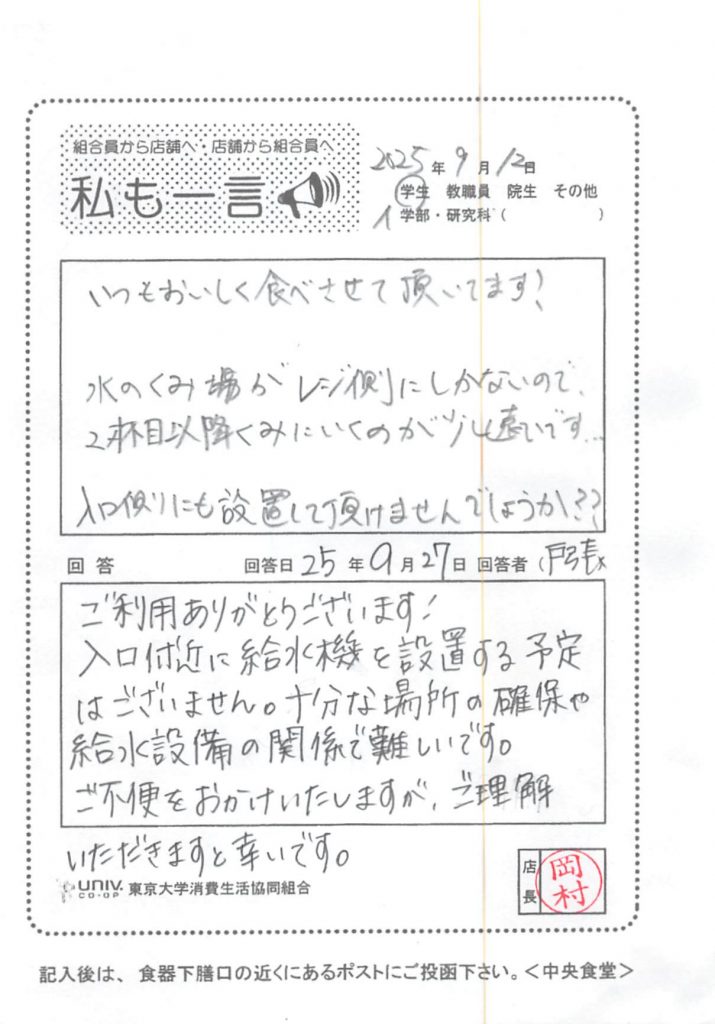 組合員から店舗へ・店舗から組合員へ
私も一言
2025年9月12日
学生 教職員 院生 その他
1 学部・研究科( )
いつもおいしく食べさせて頂いてます!
水のくみ場がレジ側にしかないので、
2杯目以降くみにいくのが少し遠いです...
入口側にも設置して頂けませんでしょうか??
回答 回答日 25年9月27日 回答者(戸張)
ご利用ありがとうございます!
入口付近に給水機を設置する予定
はございません。十分な場所の確保や
給水設備の関係で難しいです。
ご不便をおかけいたしますが、ご理解
いただきますと幸いです。
UNIV. CO-OP 東京大学消費生活協同組合
店長 岡村
記入後は、食器下膳口の近くにあるポストにご投函下さい。<中央食堂>